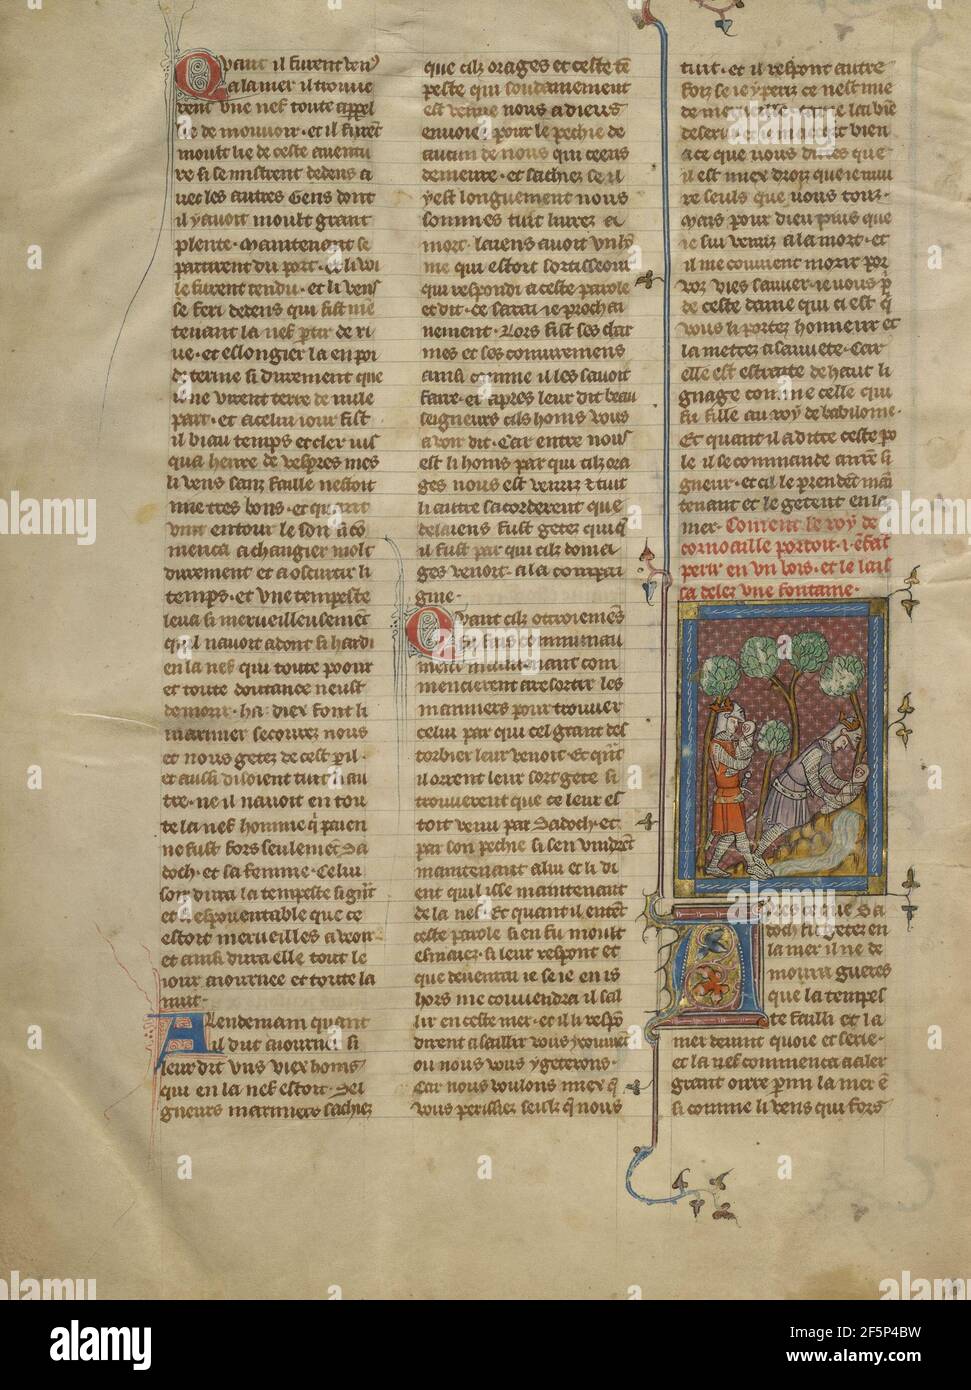 Quant il furent venu
a la mer il trouve
rent vne nef toute appel
lie de mouuoir · et il furet
moult lie de ceste auentu
re si se mistrent dedens a
uec les autres gens dont
il y auoit moult grant
plente · Maintenant se
partirent du port · et li voi
le furent tendu · et li vens
se feri dedens qui fist me
tenant la nef partir de ri
ue · et eslongier la en poi
de terme si durement que
il ne virent terre de nule
part · et a celui iour fist
il biau temps et cler ius
qua heure de vespres mes
li vens sanz faille nestoit
mie tres bons · et quant
vint entour le soir a co
menca a changier molt
durement et a oscurcir li
temps · et vne tempeste
leua si merueilleusement
quil nauoit adont si hardi
en la nef qui toute poour
et toute doutance neust
de morir · ha · diex font li
marinier secourez nous
et nous getez de cest pil ·
et aussi disoient tuit li au
tre · ne il nauoit en tou
te la nef homme q paien
ne fust fors seulement Sa
doch · et sa femme · Celui
soir dura la tempeste si gnt
et si espouentable que ce
estoit merueilles a veoir ·
et ainsi dura elle tout le
iour aiournee et toute la
nuit ·
A lendemain quant
il dut aiourner si
leur dit vns viex homs
qui en la nef estoit · Sei
gneurs mariniers sachiez
que cilz orages et ceste te
peste qui soudainement
est venue nous a dieus
enuoie pour le pechie de
aucun de nous qui ceens
demeure · et sachiez se il
y est longuement nous
sommes tuit liurez a
mort · laiens auoit vn ho
me qui estoit sortisseour
qui respondi a ceste parole
et dit · ce sarai ie prochai
nement · Lors fist ses char
mes et ses coniuremens
ainsi comme il les sauoit
faire · et apres leur dit beau
seigneurs cils homs vous
a voir dit · Car entre nous
est li homs par qui cilz ora
ges nous est venuz et tuit
li autre sacorderent que
de laiens fust getez quiq
il fust par qui cilz doma
ges venoit · a la compai
gnie ·
Quant cilz otroiemens
fu fais communau
ment maintenant com
mencierent a resortir les
manniers pour trouuer
celui par qui cel grant des
torbier leur venoit · Et qnt
il orrent leur sort gete si
trouuerent que ce leur es
toit venu par Sadoch · et
par son pechie si sen vindret
maintenant a lui et li di
ent quil isse maintenant
de la nef · Et quant il entet
ceste parole si en fu moult
esmaiez · si leur respont et
que deuenrai ie se ie en is
hors me conuendra il sal
lir en ceste mer · et il li respo
dirent a saillir vous y couuiet
ou nous vous y geterons ·
Car nous voulons miex q
vous perissiez seulz q nous
tuit · et il respont autre
foiz se ie y periz ce nest mie
de merueille · car ie lai bie
deserui · et ie mottroi bien
a ce que vous dites que
il est miex droiz que ie mui
re seuls que vous touz ·
Mais pour dieu puis que
ie sui venuz a la mort · et
il me couuient morir por
voz vies sauuer · ie vous p
de ceste dame qui ci est q
vous li portez honneur et
la mettez a sauuete · Car
elle est estraite de haut li
gnage comme celle qui
fu fille au roy de babilonie ·
Et quant il a dit ceste pa
le il se commande a nre si
gneur · et cil le prendent main
tenant et le getent en la
mer · Coment le roy de
cornoaille portoit · i · efat
perir en vn bois · et le lais
sa delez vne fontaine ·
Apres ce que Sa
doch fu getez en
la mer il ne de
moura gueres
que la tempes
te failli et la
mer deuint quoie et serie ·
et la nef commenca a aler
grant oirre parmi la mer e
si comme li vens qui fors
alamy
Image ID: 2F5P4BW
www.alamy.com